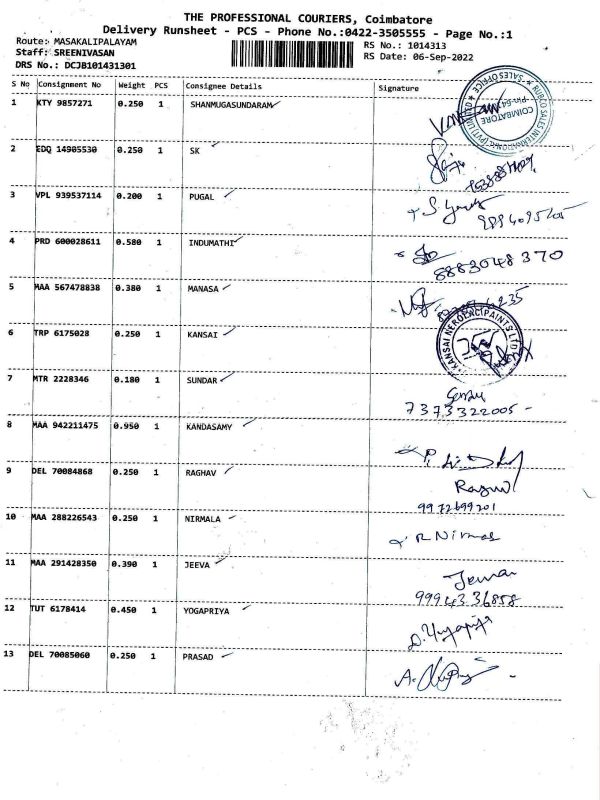 THE PROFESSIONAL COURIERS, Coimbatore
Delivery Runsheet - PCS - Phone No.:0422-3505555 - Page No.:1
Route: MASAKALIPALAYAM
Staff: SREENIVASAN
DRS No.: DCJB101431301
RS No.: 1014313
RS Date: 06-Sep-2022
S No Consignment No Weight PCS Consignee Details Signature
1 KTY 9857271 0.250 1 SHANMUGASUNDARAM
COIMBATORE
2 EDQ 14905530 0.250 1 SK
3 VPL 939537114 0.200 1 PUGAL
4 PRD 600028611 0.580 1 INDUMATHI
8883048370
5 MAA 567478838 0.380 1 MANASA
6 TRP 6175028 0.250 1 KANSAI
7 MTR 2228346 0.180 1 SUNDAR
7373322005
8 MAA 942211475 0.950 1 KANDASAMY
9 DEL 70084868 0.250 1 RAGHAV
10 MAA 288226543 0.250 1 NIRMALA
R Nirmala
11 MAA 291428350 0.390 1 JEEVA
9994336858
12 TUT 6178414 0.450 1 YOGAPRIYA
13 DEL 70085060 0.250 1 PRASAD